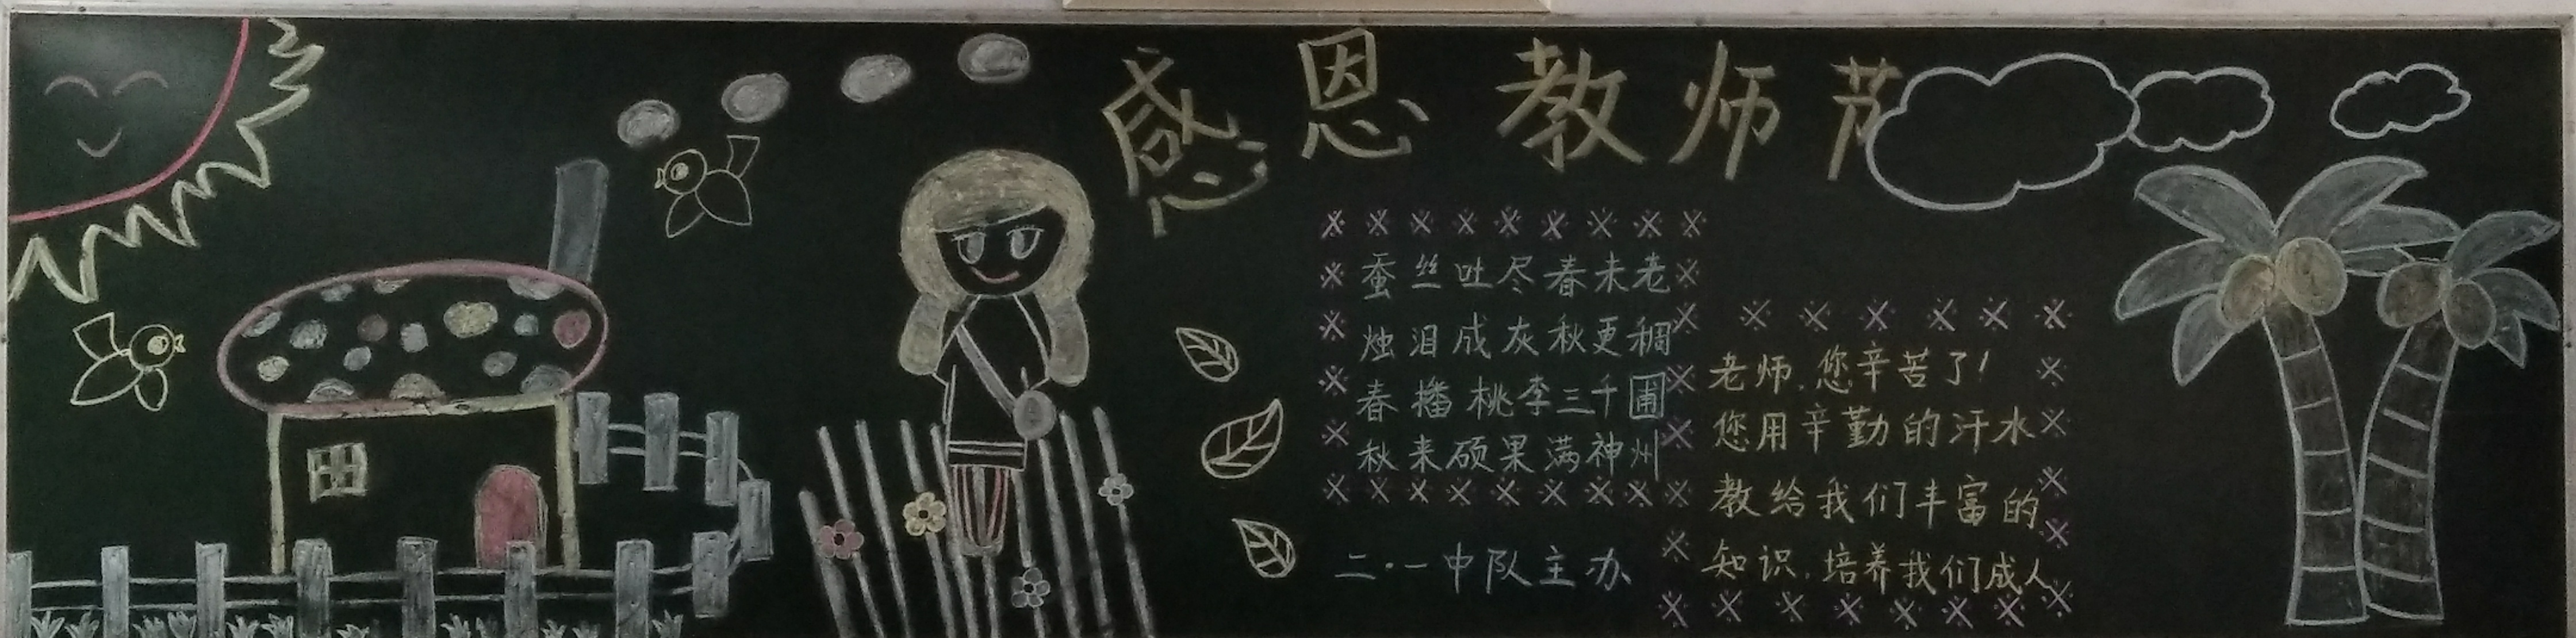 感恩教师节
蚕丝吐尽春未老
烛泪成灰秋更稠
春播桃李三千圃
秋来硕果满神州
二·一中队主办
老师,您辛苦了!
您用辛勤的汗水
教给我们丰富的
知识,培养我们成人